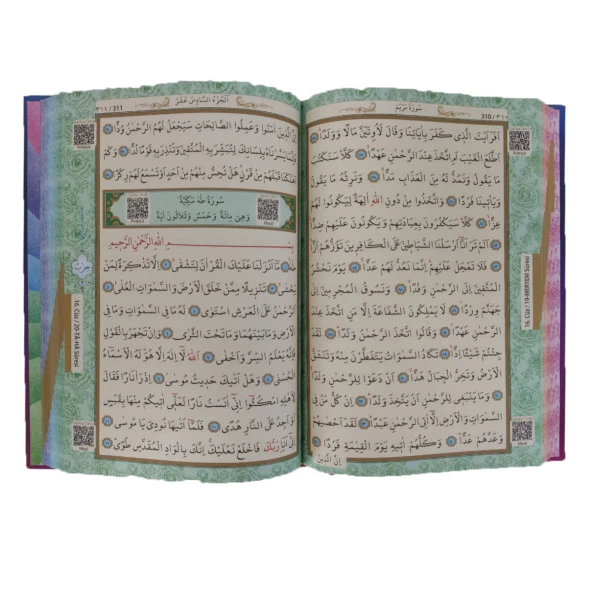 سُورَةُ مَرْيَمَ
310 / ٣١٠
اَفَرَاَيْتَ الَّذِي كَفَرَ بِاٰيَاتِنَا وَقَالَ لَاُوتَيَنَّ مَالًا وَوَلَدًا ﴿٧٧﴾
اَطَّلَعَ الْغَيْبَ اَمِ اتَّخَذَ عِنْدَ الرَّحْمٰنِ عَهْدًا ﴿٧٨﴾ كَلَّا سَنَكْتُبُ
مَا يَقُولُ وَنَمُدُّ لَهُ مِنَ الْعَذَابِ مَدًّا ﴿٧٩﴾ وَنَرِثُهُ مَا يَقُولُ
وَيَأْتِينَا فَرْدًا ﴿٨٠﴾ وَاتَّخَذُوا مِنْ دُونِ اللّٰهِ اٰلِهَةً لِيَكُونُوا لَهُمْ
عِزًّا ﴿٨١﴾ كَلَّا سَيَكْفُرُونَ بِعِبَادَتِهِمْ وَيَكُونُونَ عَلَيْهِمْ ضِدًّا
﴿٨٢﴾ اَلَمْ تَرَ اَنَّا اَرْسَلْنَا الشَّيَاطِينَ عَلَى الْكَافِرِينَ تَؤُزُّهُمْ اَزًّا
﴿٨٣﴾ فَلَا تَعْجَلْ عَلَيْهِمْ اِنَّمَا نَعُدُّ لَهُمْ عَدًّا ﴿٨٤﴾ يَوْمَ نَحْشُرُ
الْمُتَّقِينَ اِلَى الرَّحْمٰنِ وَفْدًا ﴿٨٥﴾ وَنَسُوقُ الْمُجْرِمِينَ اِلٰى
جَهَنَّمَ وِرْدًا ﴿٨٦﴾ لَا يَمْلِكُونَ الشَّفَاعَةَ اِلَّا مَنِ اتَّخَذَ عِنْدَ
الرَّحْمٰنِ عَهْدًا ﴿٨٧﴾ وَقَالُوا اتَّخَذَ الرَّحْمٰنُ وَلَدًا ﴿٨٨﴾ لَقَدْ
جِئْتُمْ شَيْئًا اِدًّا ﴿٨٩﴾ تَكَادُ السَّمٰوَاتُ يَتَفَطَّرْنَ مِنْهُ وَتَنْشَقُّ
الْاَرْضُ وَتَخِرُّ الْجِبَالُ هَدًّا ﴿٩٠﴾ اَنْ دَعَوْا لِلرَّحْمٰنِ وَلَدًا
﴿٩١﴾ وَمَا يَنْبَغِي لِلرَّحْمٰنِ اَنْ يَتَّخِذَ وَلَدًا ﴿٩٢﴾ اِنْ كُلُّ مَنْ فِي
السَّمٰوَاتِ وَالْاَرْضِ اِلَّا اٰتِي الرَّحْمٰنِ عَبْدًا ﴿٩٣﴾ لَقَدْ اَحْصٰيهُمْ
وَعَدَّهُمْ عَدًّا ﴿٩٤﴾ وَكُلُّهُمْ اٰتِيهِ يَوْمَ الْقِيٰمَةِ فَرْدًا ﴿٩٥﴾
اِنَّ الَّذِينَ
16. Cüz / 19-MERYEM Sûresi
اَلْجُزْءُ السَّادِسَ عَشَرَ
311 / ٣١١
اِنَّ الَّذِينَ اٰمَنُوا وَعَمِلُوا الصَّالِحَاتِ سَيَجْعَلُ لَهُمُ الرَّحْمٰنُ وُدًّا ﴿٩٦﴾
فَاِنَّمَا يَسَّرْنَاهُ بِلِسَانِكَ لِتُبَشِّرَ بِهِ الْمُتَّقِينَ وَتُنْذِرَ بِهِ قَوْمًا لُدًّا ﴿٩٧﴾ وَكَمْ
اَهْلَكْنَا قَبْلَهُمْ مِنْ قَرْنٍ هَلْ تُحِسُّ مِنْهُمْ مِنْ اَحَدٍ اَوْ تَسْمَعُ لَهُمْ رِكْزًا ﴿٩٨﴾
سُورَةُ طٰهٰ مَكِّيَّةٌ
وَهِيَ مِائَةٌ وَخَمْسٌ وَثَلَاثُونَ اٰيَةً
بِسْمِ اللّٰهِ الرَّحْمٰنِ الرَّحِيمِ
طٰهٰ ﴿١﴾ مَا اَنْزَلْنَا عَلَيْكَ الْقُرْاٰنَ لِتَشْقٰى ﴿٢﴾ اِلَّا تَذْكِرَةً لِمَنْ
يَخْشٰى ﴿٣﴾ تَنْزِيلًا مِمَّنْ خَلَقَ الْاَرْضَ وَالسَّمٰوَاتِ الْعُلٰى ﴿٤﴾
اَلرَّحْمٰنُ عَلَى الْعَرْشِ اسْتَوٰى ﴿٥﴾ لَهُ مَا فِي السَّمٰوَاتِ وَمَا فِي
الْاَرْضِ وَمَا بَيْنَهُمَا وَمَا تَحْتَ الثَّرٰى ﴿٦﴾ وَاِنْ تَجْهَرْ بِالْقَوْلِ
فَاِنَّهُ يَعْلَمُ السِّرَّ وَاَخْفٰى ﴿٧﴾ اَللّٰهُ لَا اِلٰهَ اِلَّا هُوَ لَهُ الْاَسْمَاءُ
الْحُسْنٰى ﴿٨﴾ وَهَلْ اَتٰيكَ حَدِيثُ مُوسٰى ﴿٩﴾ اِذْ رَاٰ نَارًا فَقَالَ
لِاَهْلِهِ امْكُثُوا اِنِّي اٰنَسْتُ نَارًا لَعَلِّي اٰتِيكُمْ مِنْهَا بِقَبَسٍ
اَوْ اَجِدُ عَلَى النَّارِ هُدًى ﴿١٠﴾ فَلَمَّا اَتٰيهَا نُودِيَ يَا مُوسٰى ﴿١١﴾
اِنِّي اَنَا رَبُّكَ فَاخْلَعْ نَعْلَيْكَ اِنَّكَ بِالْوَادِ الْمُقَدَّسِ طُوًى ﴿١٢﴾
16. Cüz / 20-TÂ-HÂ Sûresi